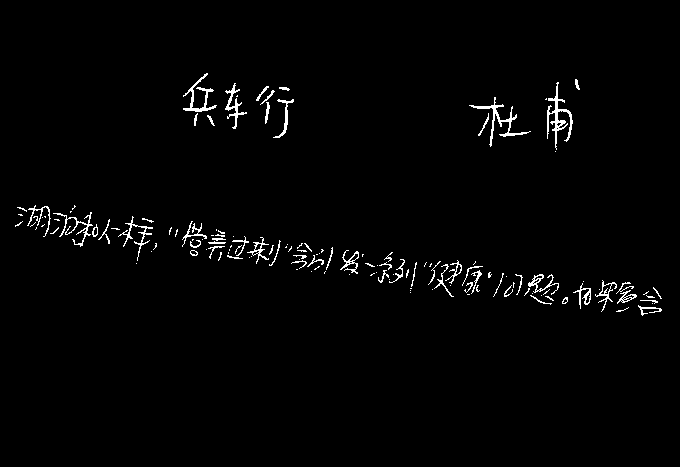 兵车行 杜甫
湖泊和人一样，“营养过剩”会引发一系列“健康”问题。